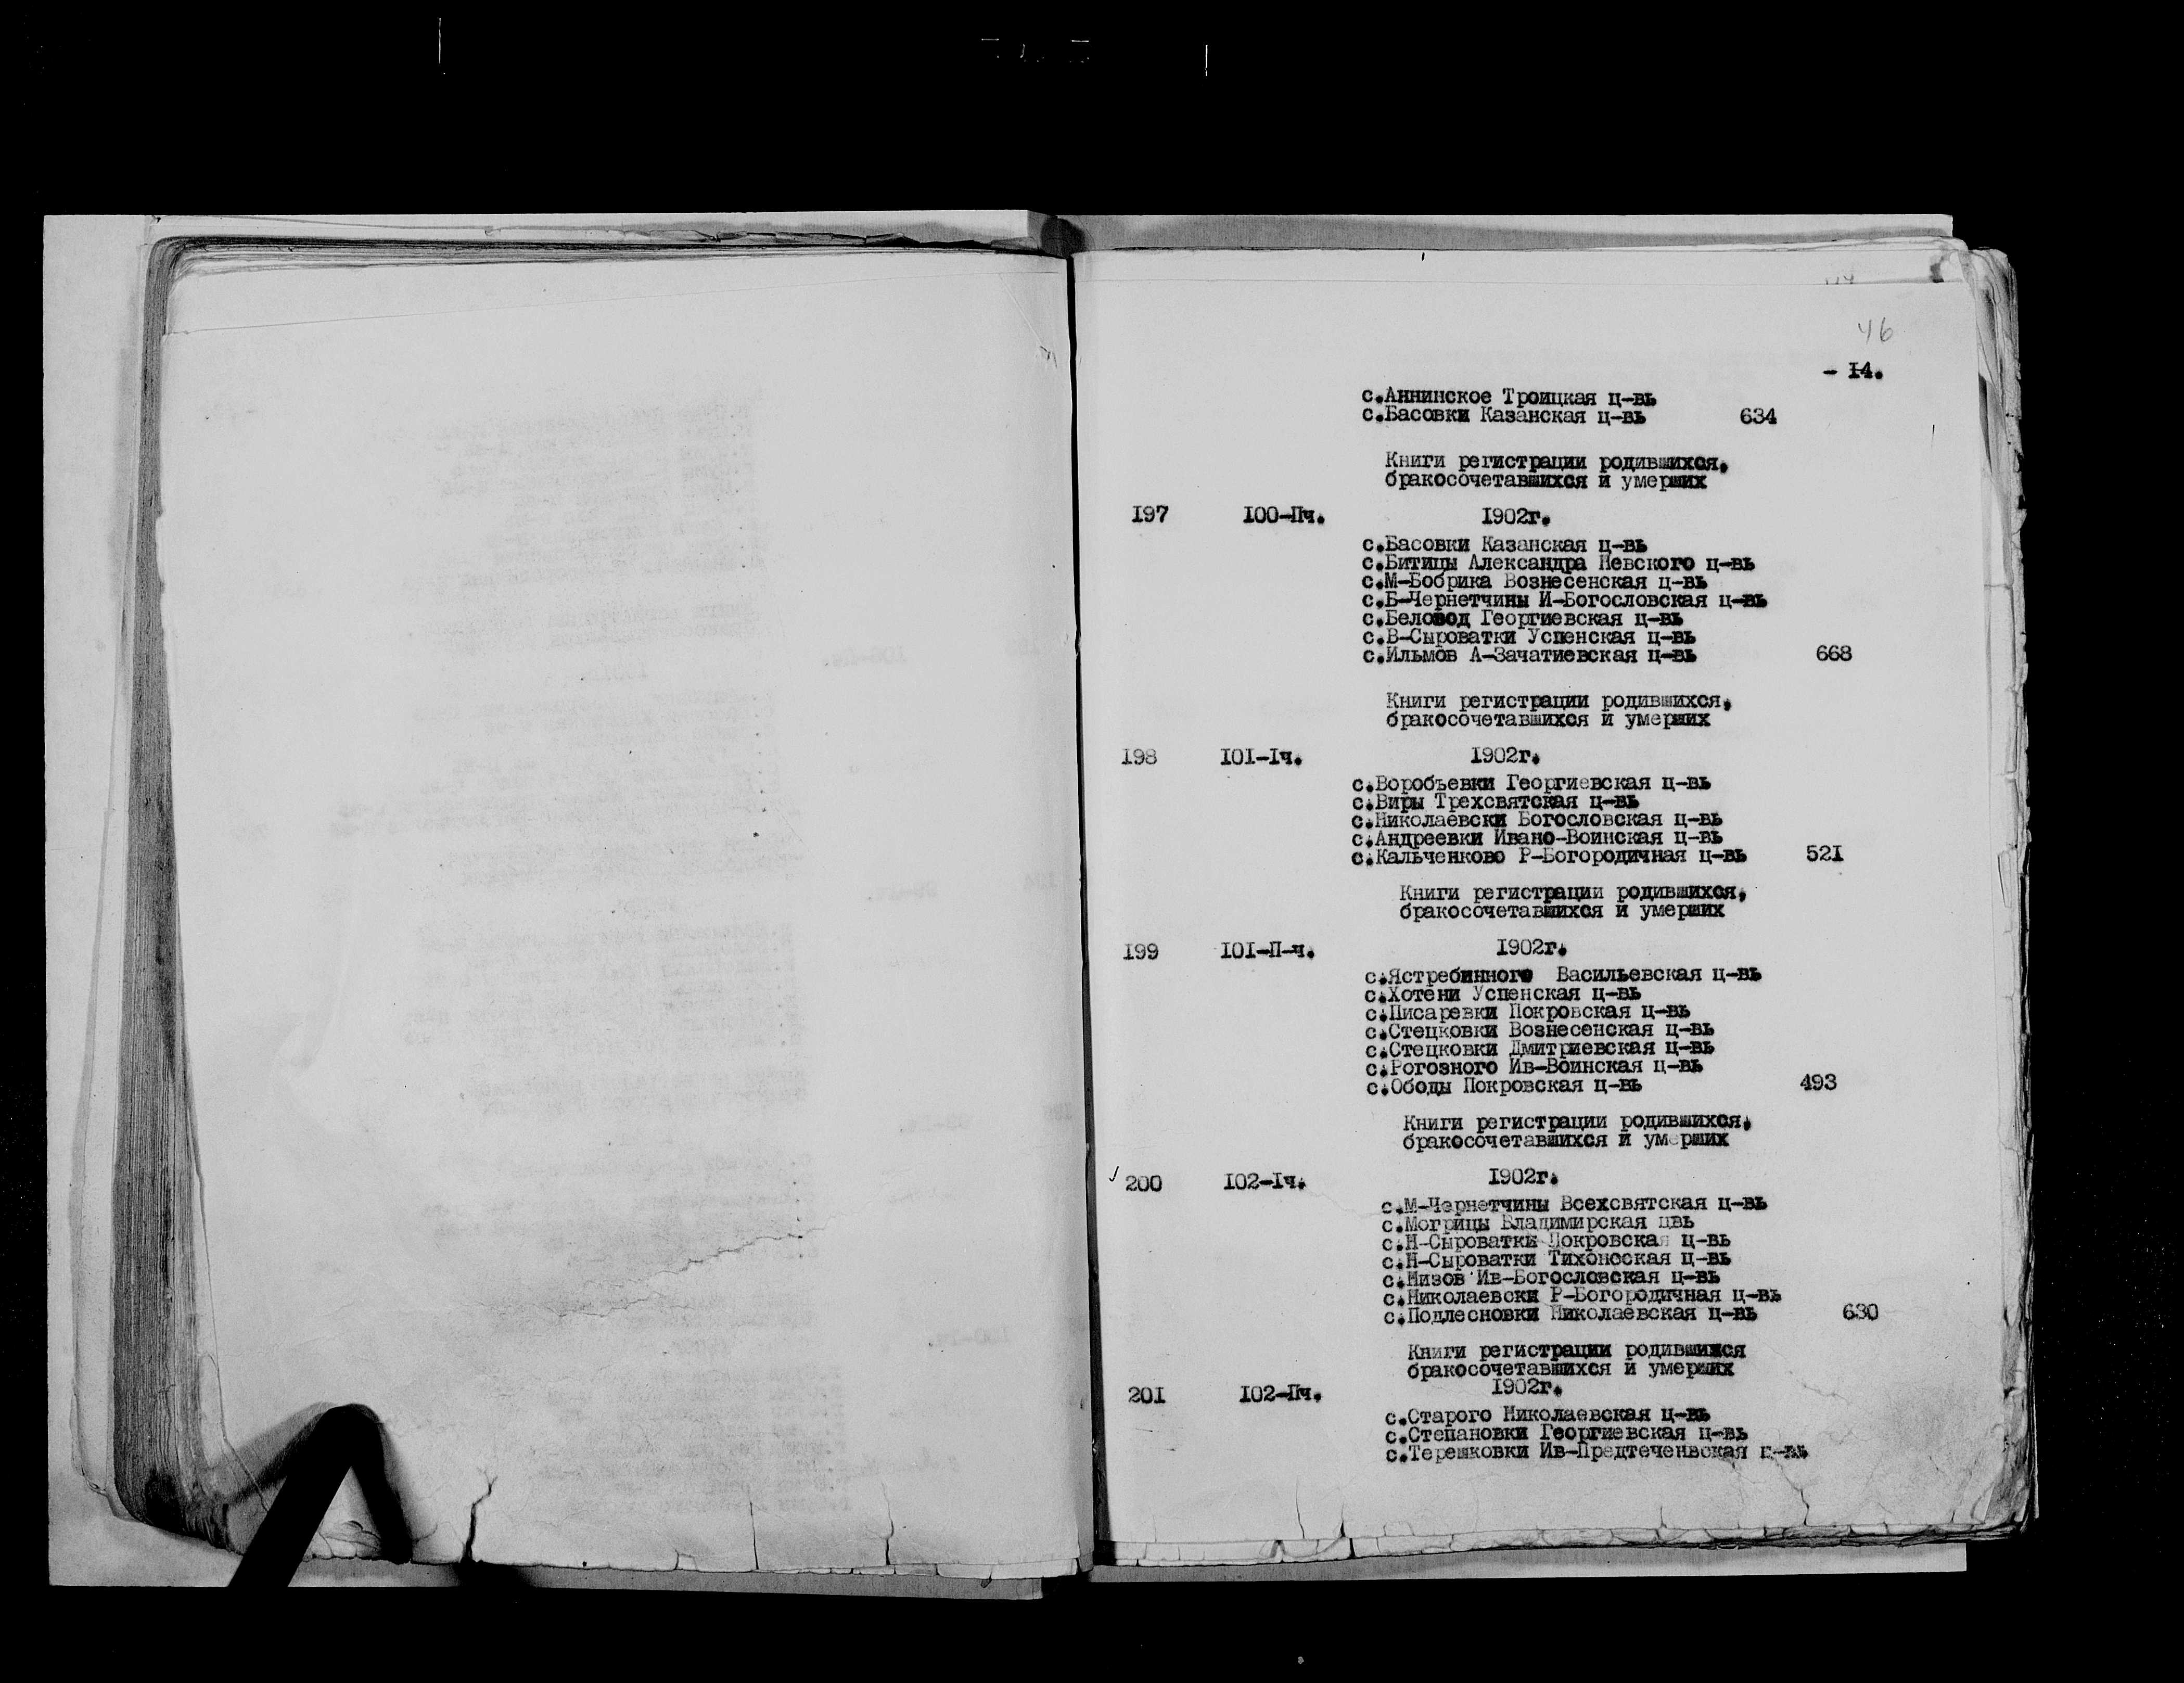 46
- I4.
с.Аннинское Троицкая ц-вь
с.Басовки Казанская ц-вь 634
Книги регистрации родившихся,
бракосочетавшихся и умерших
I97 I00-Пч. I902г.
с.Басовки Казанская ц-вь
с.Битицы Александра Невского ц-вь
с.М-Бобрика Вознесенская ц-вь
с.Б-Чернетчины И-Богословская ц-вь
с.Беловод Георгиевская ц-вь
с.В-Сыроватки Успенская ц-вь
с.Ильмов А-Зачатиевская ц-вь 668
Книги регистрации родившихся,
бракосочетавшихся и умерших
I98 I0I-Iч. I902г.
с.Воробъевки Георгиевская ц-вь
с.Виры Трехсвятская ц-вь
с.Николаевски Богословская ц-вь
с.Андреевки Ивано-Воинская ц-вь
с.Кальченково Р-Богородичная ц-вь 52I
Книги регистрации родившихся,
бракосочетавшихся и умерших
I99 I0I-П-ч. I902г.
с.Ястребинного Васильевская ц-вь
с.Хотени Успенская ц-вь
с.Писаревки Покровская ц-вь
с.Стецковки Вознесенская ц-вь
с.Стецковки Дмитриевская ц-вь
с.Рогозного Ив-Воинская ц-вь
с.Ободы Покровская ц-вь 493
Книги регистрации родившихся,
бракосочетавшихся и умерших
200 I02-Iч. I902г.
с.М-Чернетчины Всехсвятская ц-вь
с.Могрицы Владимирская цвь
с.Н-Сыроватки Покровская ц-вь
с.Н-Сыроватки Тихоновская ц-вь
с.Низов Ив-Богословская ц-вь
с.Николаевски Р-Богородичная ц-вь
с.Подлесновки Николаевская ц-вь 630
Книги регистрации родившихся
бракосочетавшихся и умерших
20I I02-Пч. I902г.
с.Старого Николаевская ц-вь
с.Степановки Георгиевская ц-вь
с.Терешковки Ив-Предтеченвская ц-вь